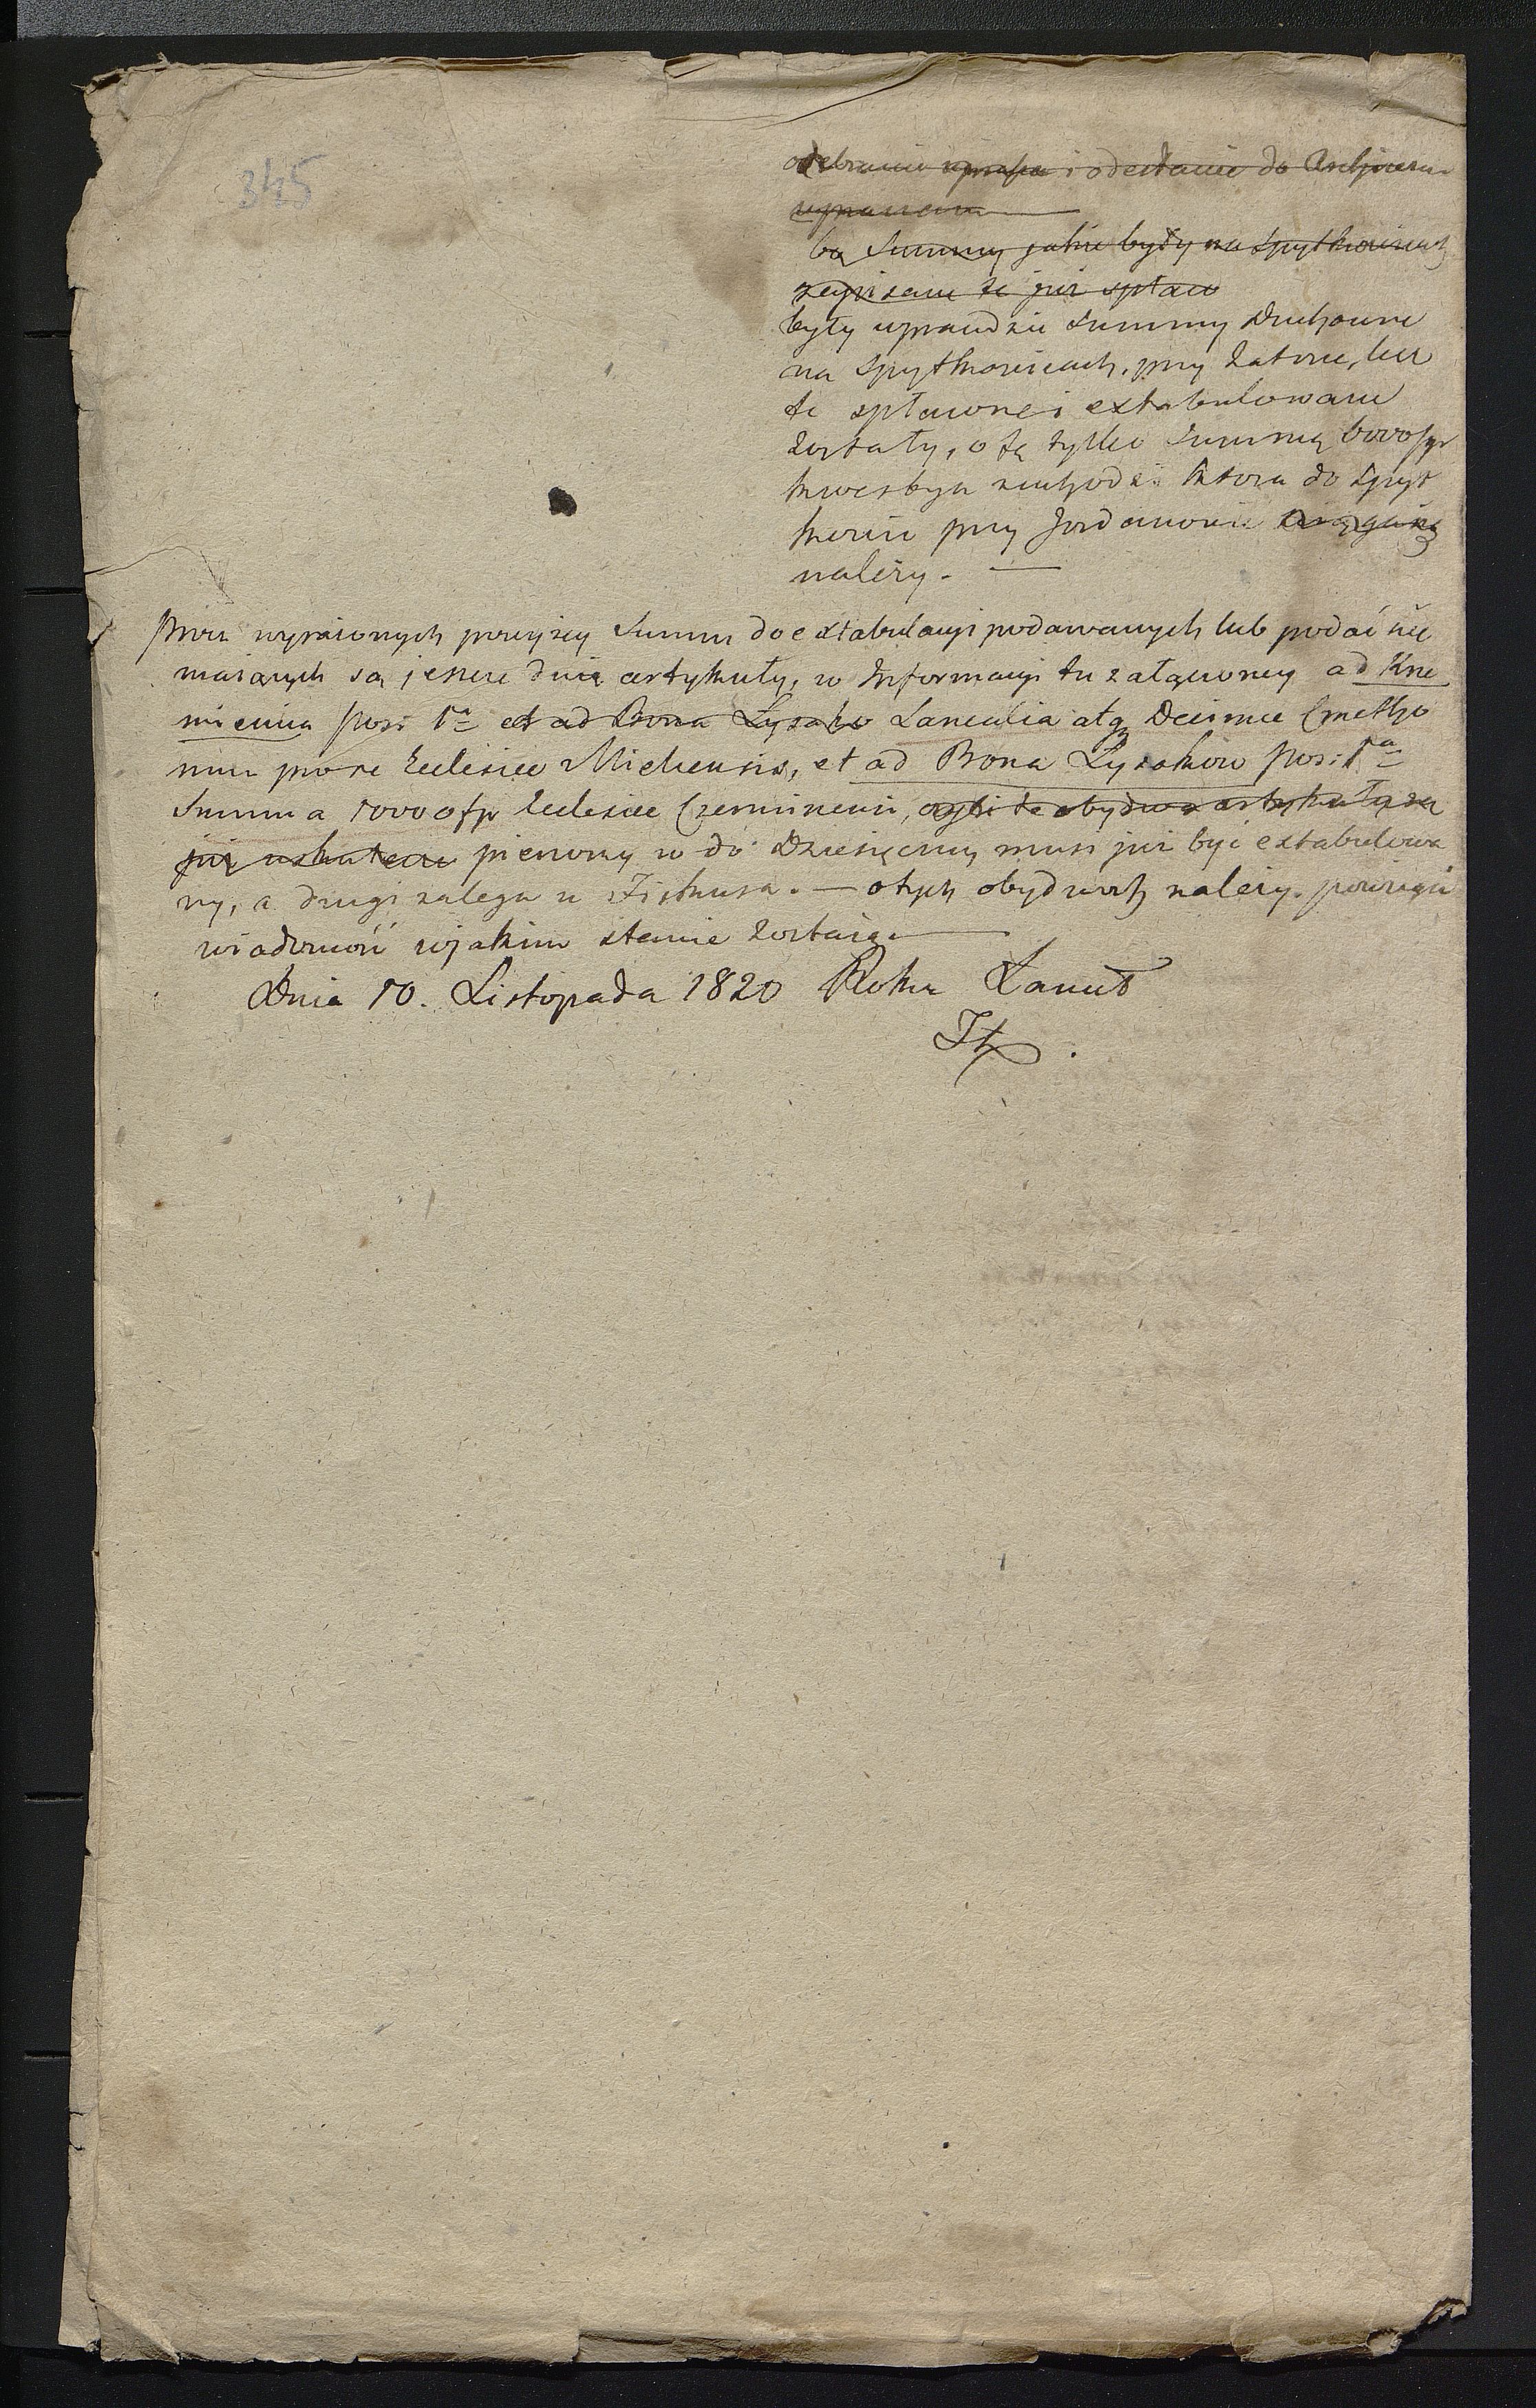 345
odebranie uprasza i odesłanie do Archiwum
upraszam
bą Summy jakie były na Spytkowicach
zapisane te już spłaco
były wprawdzie Summy Duchowne
na Spytkowicach, przy Zatorze, lecz
te spłacone i extabulowane
zostały, o tę tylko Summę 6000 fp
kwestya zachodzi która do Spyt
kowic przy Jordanowie
należy. —
Prócz wyrażonych powyżey Summ do extabulacyi podawanych lub podać się
maiących są jeszcze dwa artykuły, w Informacyi tu załączoney ad Krze
mienica posi 1ma et ad Bona Łysako Lanealia atq Decimae Cmetho
num pro re Eclesiae Michensis, et ad Bona Łysakow posi: 1ma
Summa 1000 fp Eclesiae Czerminensi, czyli te obydwa artykuły są
już uskutecz pierwszy w do Dziesięciny musi już być extabulowa
ny, a drugi zalega u Fiskusa. — o tych obydwóch należy powziąść
wiadomość w jakim stanie zostaią. —
Dnia 10. Listopada 1820 Roku Łańcut